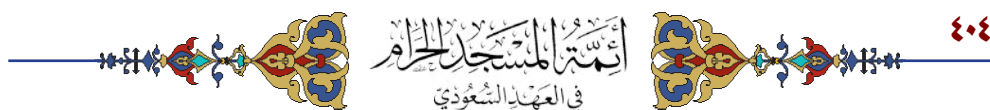 ٤٠٤
أئمة المسجد الحرام
في العهد السعودي